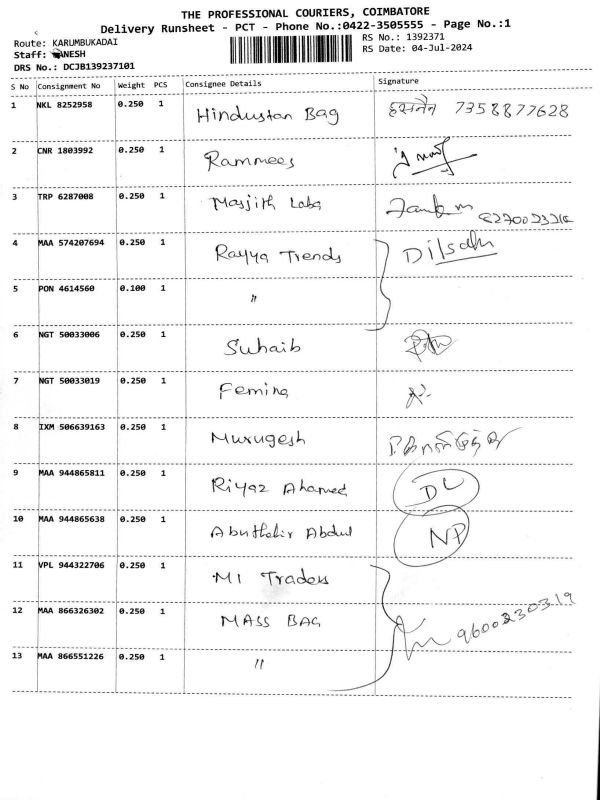 THE PROFESSIONAL COURIERS, COIMBATORE
Delivery Runsheet - PCT - Phone No.:0422-3505555 - Page No.:1
Route: KARUMBUKADAI
RS No.: 1392371
Staff: GANESH
RS Date: 04-Jul-2024
DRS No.: DCJB139237101
S No Consignment No Weight PCS Consignee Details Signature
1 NKL 8252958 0.250 1 Hindustan Bag हसनैन 7358877628
2 CNR 1803992 0.250 1 Rammees
3 TRP 6287008 0.250 1 Masjith Laba
4 MAA 574207694 0.250 1 Rayya Trends Dilsath
5 PON 4614560 0.100 1 "
6 NGT 50033006 0.250 1 Suhaib
7 NGT 50033019 0.250 1 Femina
8 IXM 506639163 0.250 1 Murugesh
9 MAA 944865811 0.250 1 Riyaz Ahamed DL
10 MAA 944865638 0.250 1 Abuthahir Abdul NP
11 VPL 944322706 0.250 1 MI Traders
12 MAA 866326302 0.250 1 MASS BAG 9600230319
13 MAA 866551226 0.250 1 "